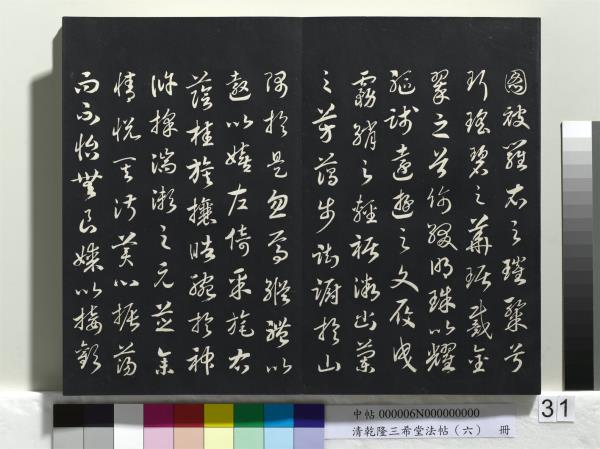 圖被羅衣之璀粲兮
珥瑤碧之華琚戴金
翠之首飾綴明珠以耀
軀踐遠遊之文履曳
霧綃之輕裾微幽蘭
之芳藹步踟躕於山
隅於是忽焉縱體以
遨以嬉左倚采旄右
蔭桂旗攘皓腕於神
滸採湍瀨之元芝余
情悅其淑美心振蕩
而不怡無良媒以接歡
中帖 000006N000000000
清乾隆三希堂法帖（六） 冊
31